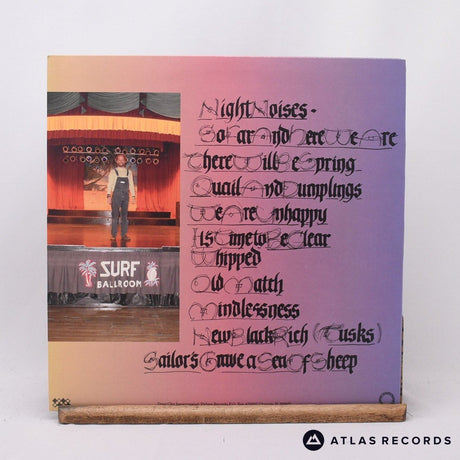 Night Noises -
So Far And Here We Are
There Will Be Spring
Quail And Dumplings
We Are Unhappy
It's Time to Be Clear
Whipped
Old Match
Mindlessness
New Black Rich (Tusks)
Sailor's Grave a Sea Of Sheep
SURF
BALLROOM
ATLAS RECORDS